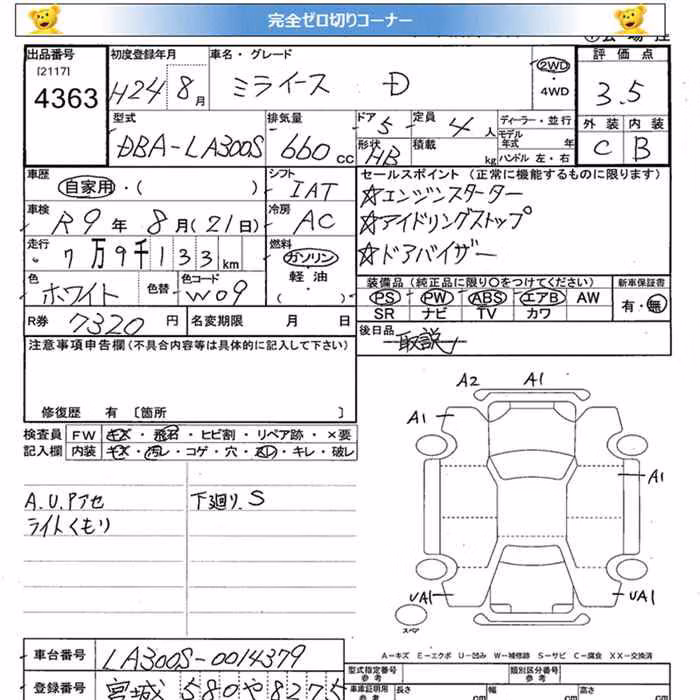 完全ゼロ切りコーナー
出品番号
[2117]
4363
初度登録年月
H24 8月
車名・グレード
ミライース D
2WD
・
4WD
評価点
3.5
外装 内装
C B
型式
DBA-LA300S
排気量
660 cc
ドア 5
形状 HB
定員 4 人
積載 kg
ディーラー・並行
モデル年式 年
ハンドル 左・右
車歴
自家用・( )
シフト
IAT
セールスポイント (正常に機能するものに限ります)
☆エンジンスターター
☆アイドリングストップ
☆ドアバイザー
車検
R9年 8月(21日)
冷房
AC
走行
7万9千133km
燃料
ガソリン
軽・油
( )
色
ホワイト
色替
色コード
W09
装備品(純正品に限り○をつけてください)
PS PW ABS エアB AW
SR ナビ TV カワ
新車保証書
有・無
R券 7320円
名変期限 月 日
後日品
取説
注意事項申告欄(不具合内容等は具体的に記入して下さい)
修復歴 有 〔箇所 〕
検査員
記入欄
FW キズ・飛石・ヒビ割・リペア跡・×要
内装 キズ・汚レ・コゲ・穴・スレ・キレ・破レ
A.U.Pアセ
ライトくもり
下廻り.S
A2 A1
A1
A1
UA1 UA1
スペア
A-キズ E-エクボ U-凹み W-補修跡 S-サビ C-腐食 XX-交換済
車台番号 LA300S-0014379
登録番号 宮城 580 や 8275
型式指定番号
参考
類別区分番号
参考
車庫証明用
参考
長さ cm
幅 cm
高さ cm